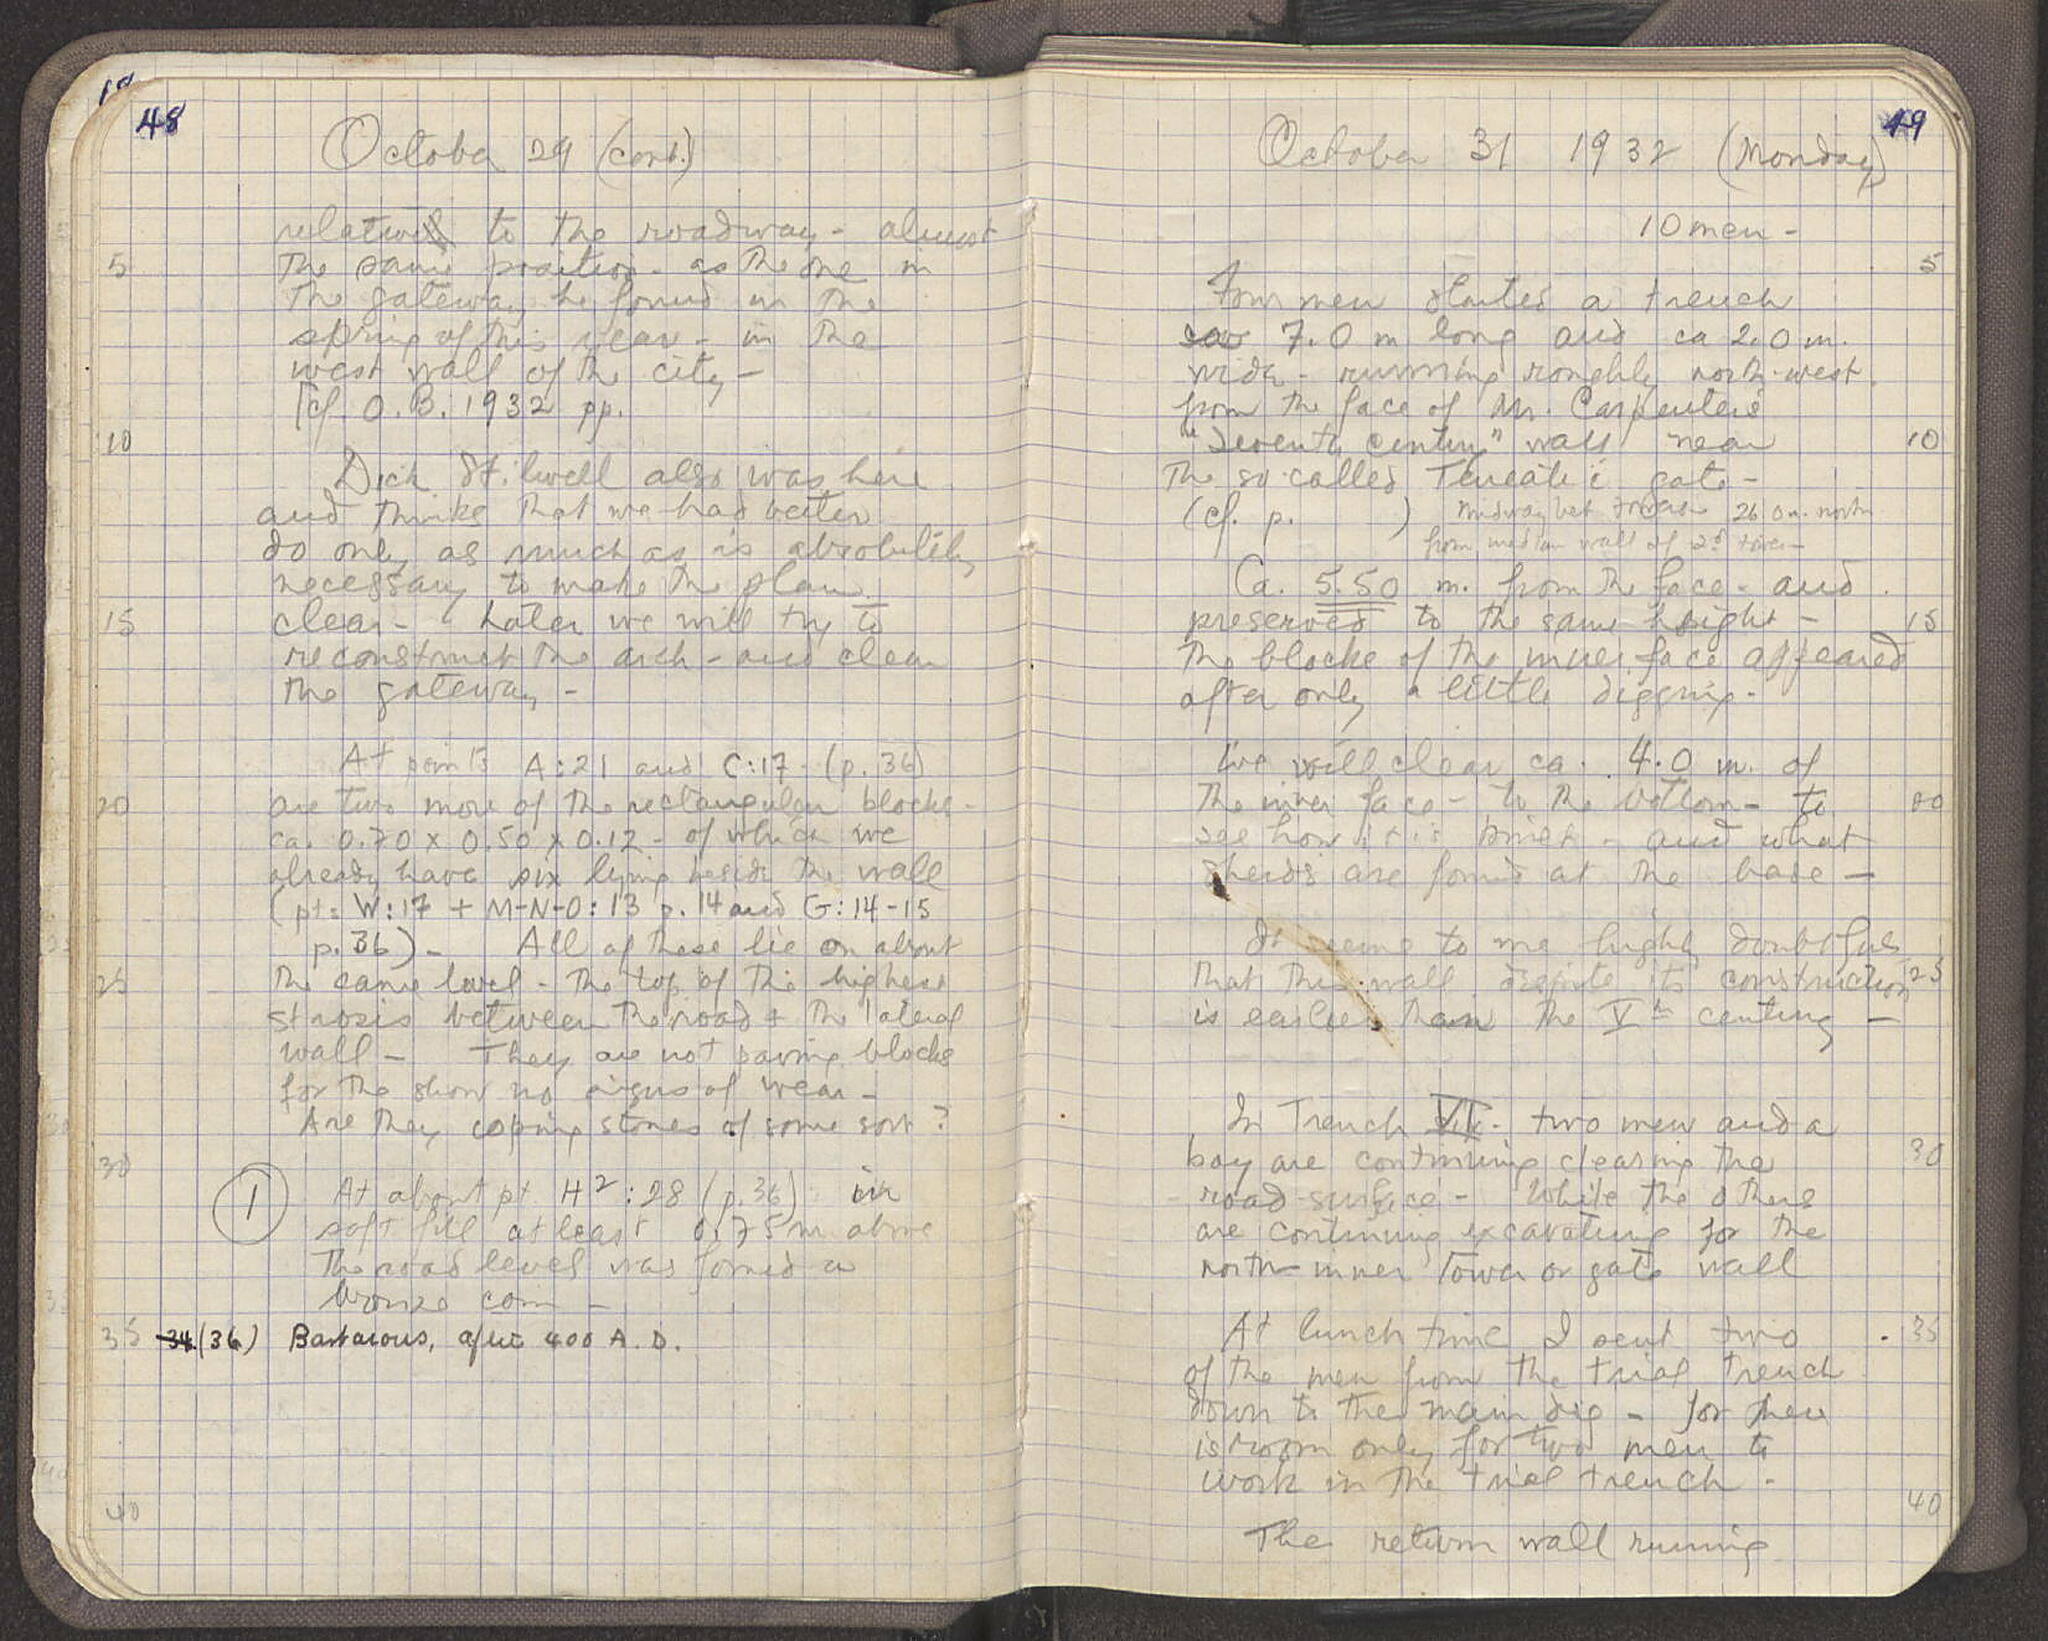 48
October 29 (cont.)
relative to the roadway - almost
5 the same position - as the one in
the gateway he found in the
spring of this year - in the
west wall of the city -
[cf. O.B. 1932 pp.
10
Dick Stillwell also was here
and thinks that we had better
do only as much as is absolutely
necessary to make the plan
15 clear - Later we will try to
reconstruct the arch - and clear
the gateway -
At points A:21 and C:17 - (p. 36)
20 are two more of the rectangular blocks -
ca. 0.70 x 0.50 x 0.12 - of which we
already have six lying beside the wall
(pts W:17 + M-N-O:13 p. 14 and G:14-15
p. 36) - All of these lie on about
25 the same level - the top of the highest
strosis between the road + the lateral
wall - They are not paving blocks
for the show no signs of wear -
Are they coping stones of some sort?
30
1 At about pt H²:28 (p. 36) in
soft fill at least 0.75 m above
the road level was found a
bronze coin -
35 34 (36) Barbarous, after 400 A.D.
40
49
October 31 1932 (Monday)
10 men -
5
Four men started a trench
7.0 m long and ca 2.0 m.
wide - running roughly north-west
from the face of Mr. Carpenter's
"Seventh Century" wall near 10
the so-called Teneatic gate -
(cf. p. ) Midway bet towers 26 0 m. north
from median wall of 2nd tower -
Ca. 5.50 m. from the face - and
preserved to the same height - 15
the blocks of the inner face appeared
after only a little digging -
We will clear ca. 4.0 m. of
the inner face - to the bottom - to 20
see how it is built - and what
sherds are found at the base -
It seems to me highly doubtful
that this wall despite its construction 25
is earlier than the Vth century -
In Trench VII - two men and a
boy are continuing clearing the 30
road-surface - While the others
are continuing excavating for the
north inner Tower or gate wall
At lunch time I sent two 35
of the men from the trial trench
down to the main dig - for there
is room only for two men to
work in the trial trench -
40
The return wall running